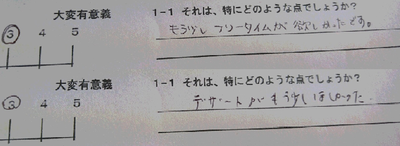 大変有意義
1-1 それは、特にどのような点でしょうか?
3 4 5
もう少しフリータイムが欲しかったです。
大変有意義
1-1 それは、特にどのような点でしょうか?
3 4 5
デザートがもう少しほしかった.